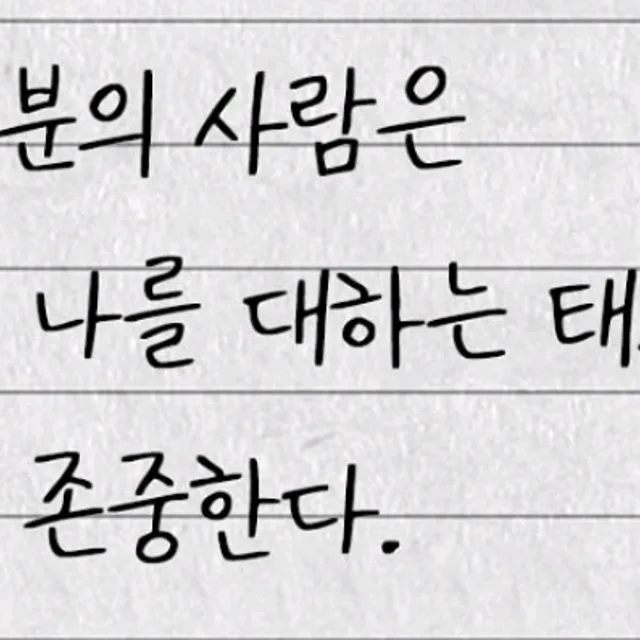 분의 사람은
나를 대하는 태
존중한다.